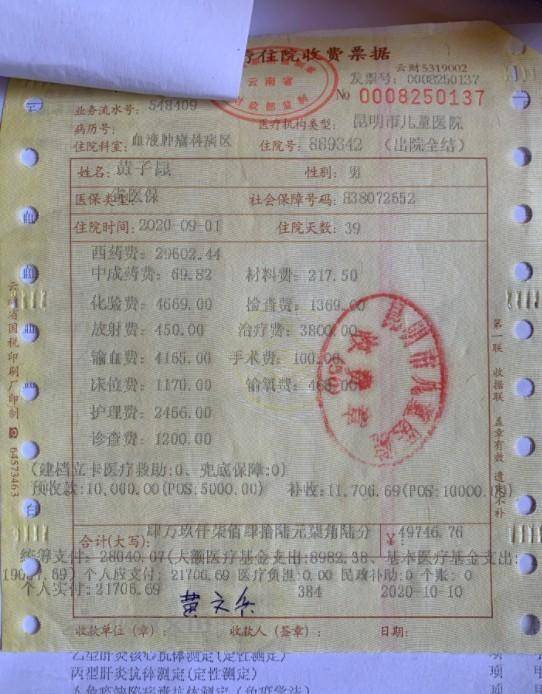 住院收费票据
云财5319002
云南省
发票号: 0008250137
No 0008250137
业务流水号: 548409
病历号:
医疗机构类型: 昆明市儿童医院
住院科室: 血液肿瘤科病区
住院号: 889342 (出院全结)
姓名: 黄子
性别: 男
医保类型: 省医保
社会保障号码: 838072552
住院时间: 2020-09-01
住院天数: 39
西药费: 29602.44
中成药费: 69.82 材料费: 217.50
化验费: 4669.00 检查费: 1369.00
放射费: 450.00 治疗费: 3800.00
输血费: 4165.00 手术费: 100.00
床位费: 1170.00 输氧费:
护理费: 2456.00
诊查费: 1200.00
(建档立卡医疗救助:0、兜底保障:0)
预收款: 10,000.00(POS:5000.00) 补收: 11,706.69(POS:10000.00)
合计(大写): 肆万玖仟柒佰肆拾陆元柒角陆分 49746.76
统筹支付: 28040.07(大额医疗基金支出:8982.38、基本医疗基金支出:
19057.69) 个人应支付: 21706.69 医疗负担:0.00 民政补助:0 个账: 0
个人实付: 21706.69
384
2020-10-10
收款单位(章):
收款人(签章):
日期:
云南省国税印刷厂印制 ☎64573463
第一联 收据联 盖章有效 遗失不补
昆明市儿童医院
收费章
乙型肝炎核心抗体测定(定性测定)
丙型肝炎抗体测定(定性测定)
项
项